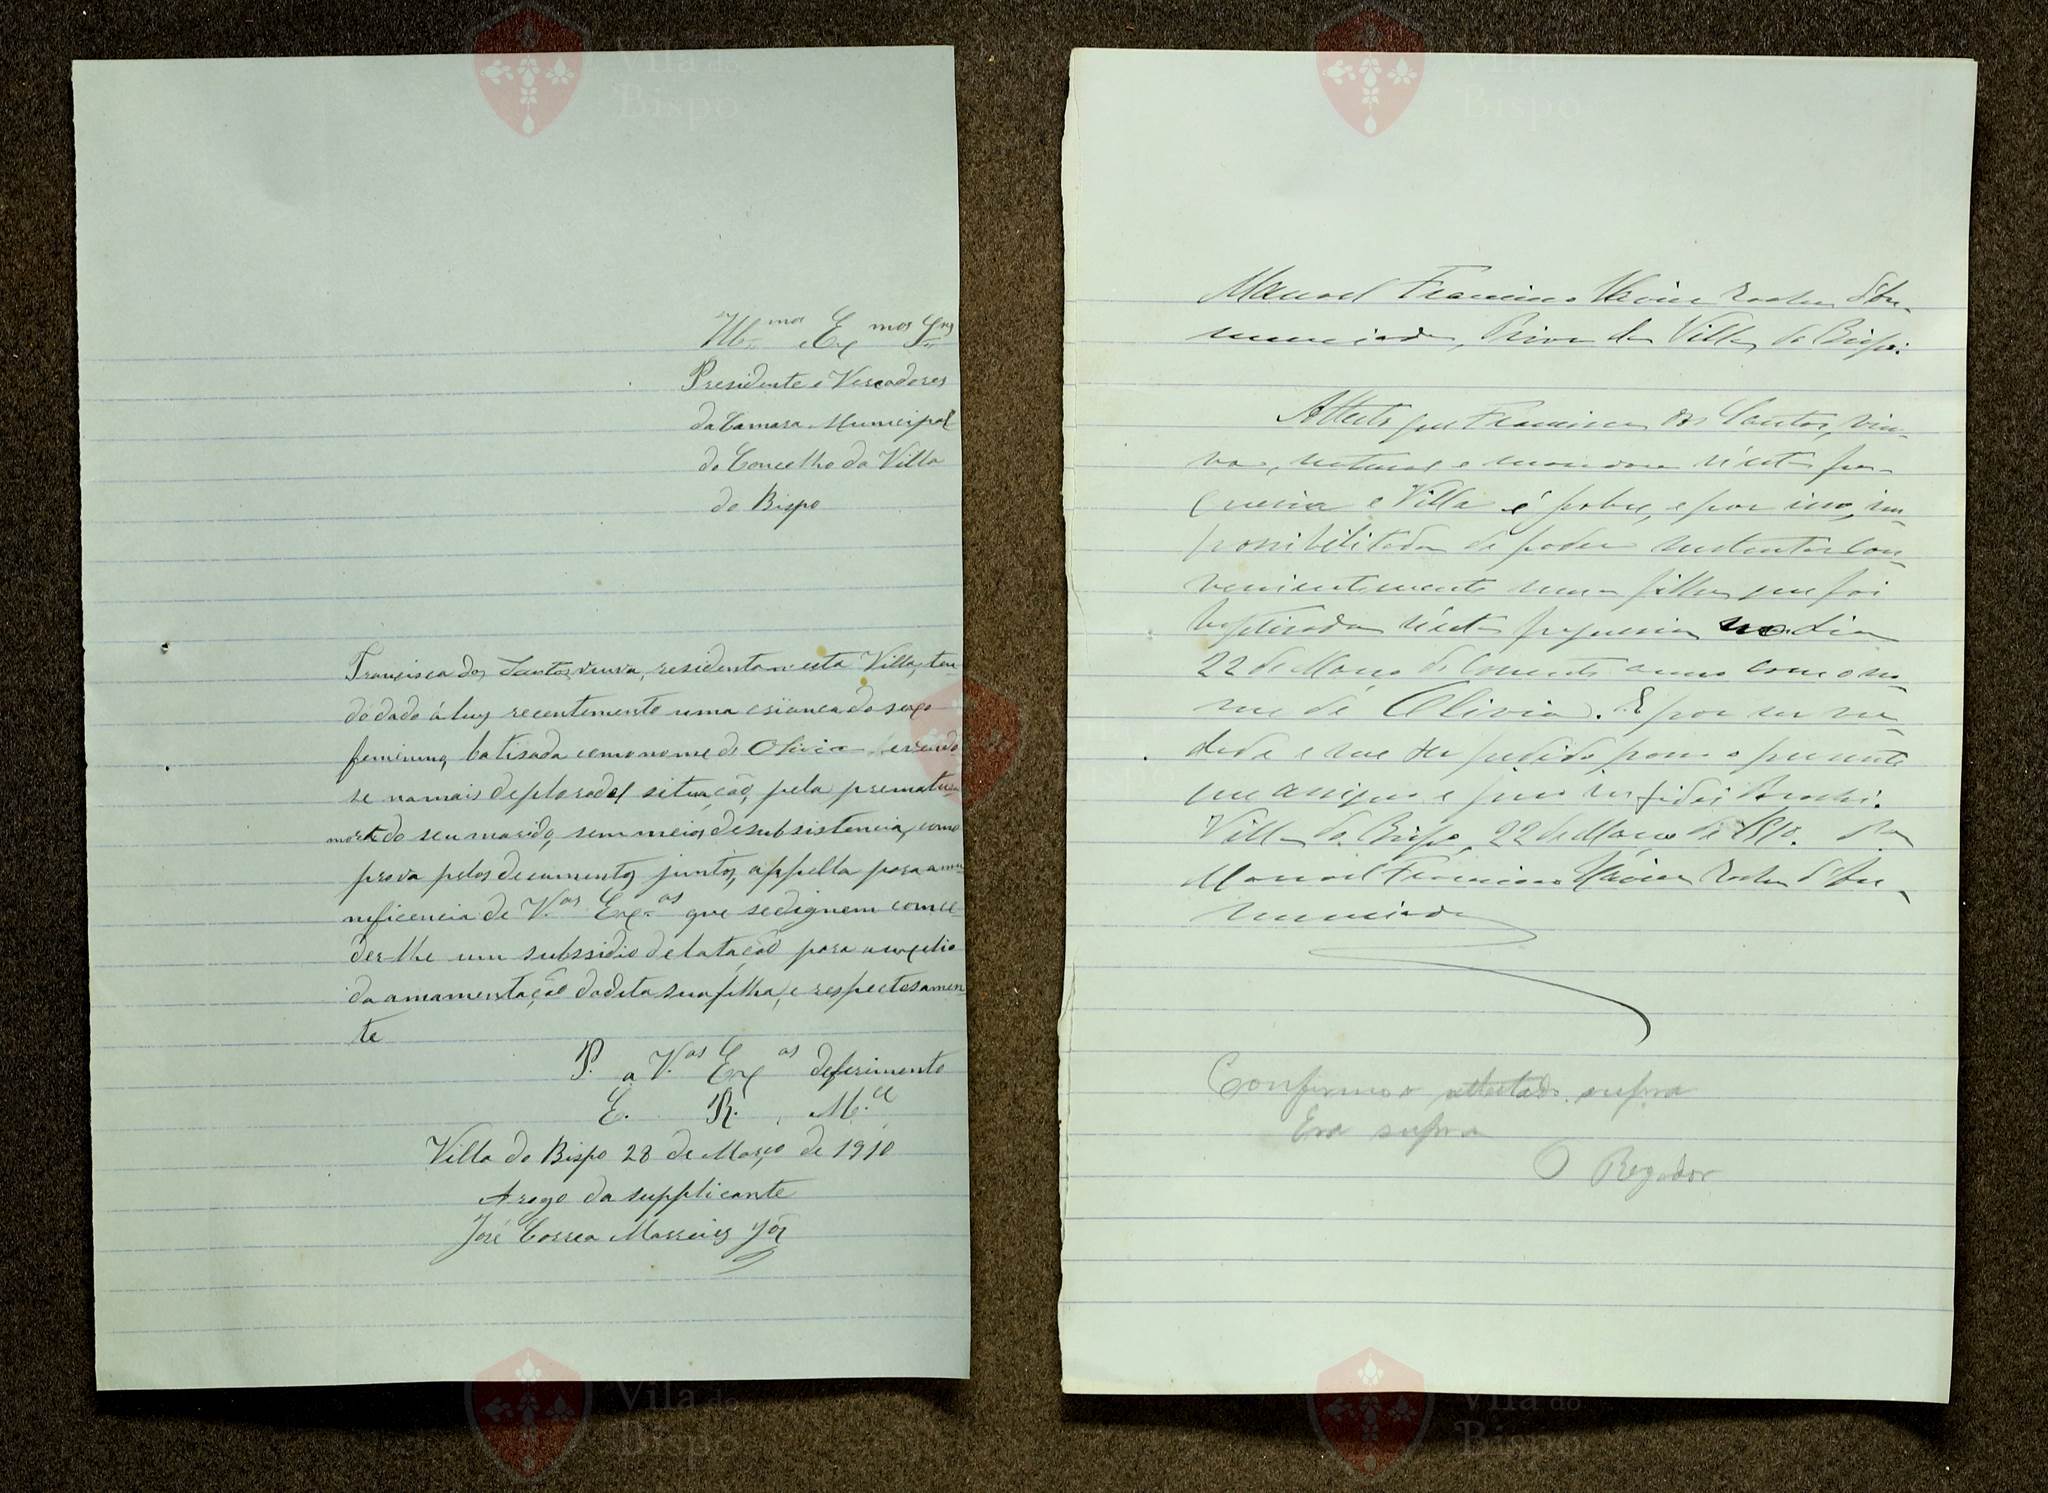 Ill.mos e Ex.mos Snrs
Presidente e Vereadores
da Camara Municipal
do Concelho da Villa
do Bispo
Francisca dos Santos, viuva, residente n'esta Villa, ten
do dado á luz recentemente uma criança do sexo
feminino, batisada com o nome de Olivia, vendo
se na mais deploravel situação, pela prematura
morte do seu marido, sem meios de subsistencia, como
prova pelos documentos juntos, appella para a mu
nificencia de V.as Ex.as que se dignem conce-
der-lhe um subssidio de latação para auxilio
da amamentação da dita sua filha, e respectosamen
te
P. a V.as Ex.as deferimento
E. R. M.cê
Villa do Bispo 28 de Março de 1910
A rogo da supplicante
José Correa Marreiros Jór
Manoel Francisco Xavier d'An-
nunciada, Prior da Villa do Bispo:
Attesto que Francisca dos Santos, viu-
va, natural e moradora n'esta fre-
guesia e Villa é pobre, e por isso, im-
possibilitada de poder sustentar con-
venientemente uma filha que foi
baptisada n'esta freguesia no dia
22 de Março do corrente anno com o no-
me de Olivia. E por ser ver
dade e me ser pedido passo o presente
que assigno e juro in fidei Parochi.
Villa do Bispo, 22 de Março de 1910.
Manoel Francisco Xavier d'An-
nunciada
Confirmo o attestado supra
Era supra
O Regedor
Vila do
Bispo
Vila do
Bispo
Vila do
Bispo
Vila do
Bispo